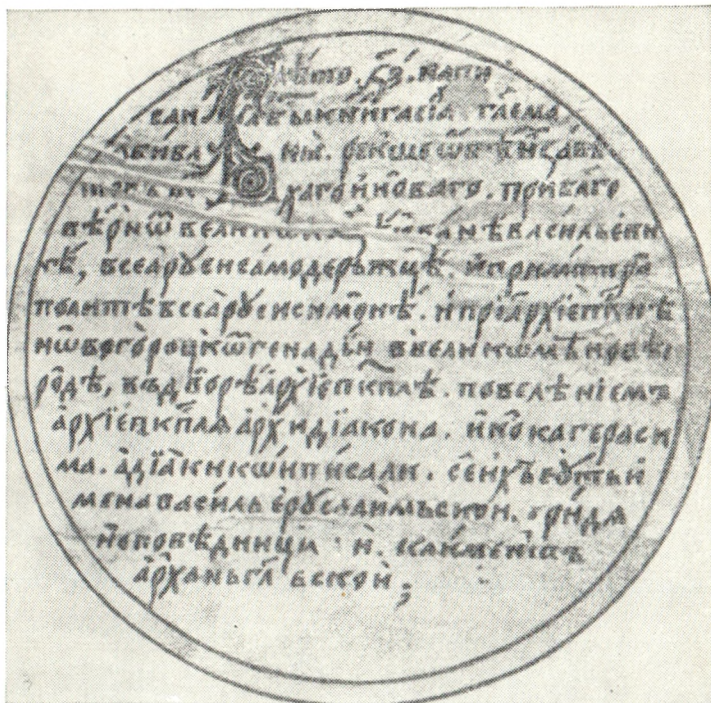 лѣто ҂з҃з. напи
сана бы книга сїа гл҃емаа
бибдїа. рекше ѡбѣихъ завѣ
товъ ветхаго и новаго. при бл҃го
вѣрнѡ великѡ кн҃зи иванѣ васильеви
чѣ, всеа рꙋсеи самодеръжцѣ. и при митро
политѣ всеа рꙋсеи симонѣ. и при архїеп҃кпѣ
нѡвогороцкѡ генадьи в великѡмъ новѣ
родѣ, въ дворѣ архїеп҃кплѣ. повелѣнїемъ
архїеп҃кпля архидїакона. инока гераси
ма. а дїаки кѡи писали. се ихъ сꙋть и
мена василь ерꙋсалимьскои. гридя
исповѣдници и. климентъ
арханьгл҃ьскои;